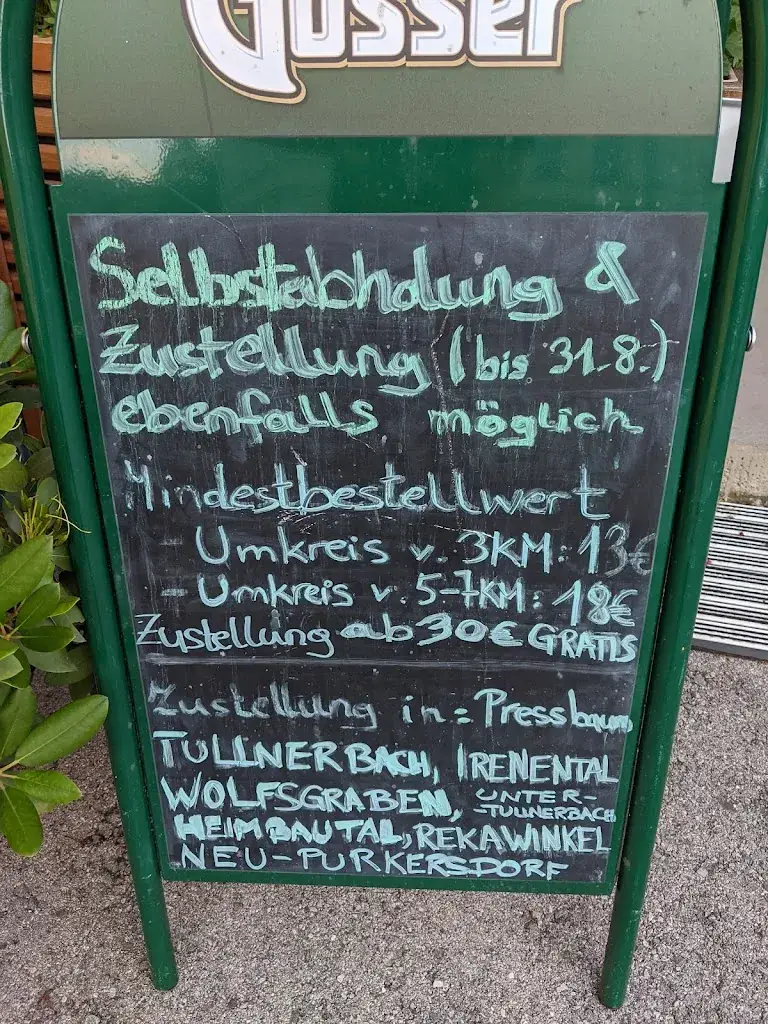 Gösser
Selbstabholung &
Zustellung (bis 31.8.)
ebenfalls möglich
Mindestbestellwert
- Umkreis v. 3KM: 13€
- Umkreis v. 5-7KM: 18€
Zustellung ab 30€ GRATIS
Zustellung in: Pressbaum
TULLNERBACH, IRENENTAL
WOLFSGRABEN, UNTER-
-TULLNERBACH
HEIMBAUTAL, REKAWINKEL
NEU-PURKERSDORF